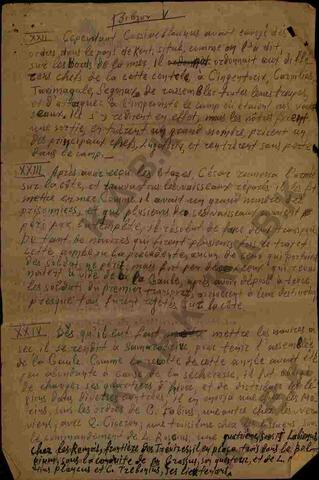 V
XXII. Cependant Cassivellaunus ayant envoyé des
ordres dans le pays de Kent, situé, comme on l'a dit
sur les bords de la mer, il ordonnait aux diffé
rens chefs de la cette contrée, à Cingentorix, Carvilius,
Taximagule, Segonax de rassembler toutes leurs troupes,
et d'attaquer à l'improviste le camp où étaient nos vais
seaux. Ils s'y rendirent en effet, mais les nôtres firent
une sortie, en tuèrent un grand nombre, prirent un
des principaux chefs, et rentrèrent sans perte
dans le camp.
XXIII. Après avoir reçu les otages, César ramena l'armée
sur la côte, et trouva les vaisseaux réparés, il les fit
mettre en mer. Comme il avait un grand nombre de
prisonniers, et que plusieurs des vaisseaux avaient
péri par la tempête, il résolut de faire deux transports.
De tant de navires qui firent plusieurs fois ce trajet,
cette année ou la précédente, aucun de ceux qui portaient
des soldats ne périt, mais fort peu de ceux qui reve
naient à vide de la Gaule, après avoir déposé à terre
les soldats du premier transport, arrivèrent à leur destination
presque tous furent rejetés sur la côte.
XXIV. Dès qu'il eut fait mettre les navires à
sec il se rendit à Samarobrive pour tenir l'assemblée
de la Gaule. Comme la récolte de cette année avait été
peu abondante à cause de la sécheresse, il fut obligé
de changer ses quartiers d'hiver, et de distribuer les lé
gions dans diverses contrées, il en envoya une chez les Mo
rins, sous les ordres de C. Fabius, une autre chez les Ner
viens, avec Q. Cicéron, une troisième chez les
le commandement de L. Roscius, une quatrième, sous T. Labienus
chez les Rémois, frontière des Trévires, il en plaça trois dans le Bel
gium, sous la conduite de M. Crassus, son questeur, et de L.
Plancus et C. Trébonius, ses lieutenants.